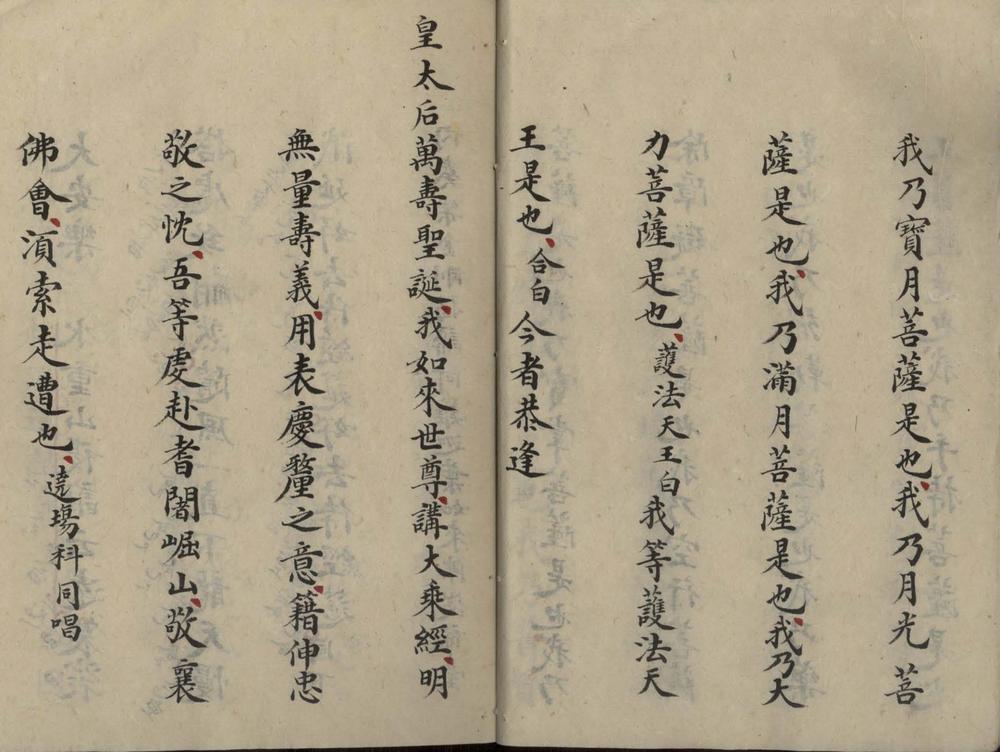 我乃寶月菩薩是也、我乃月光菩
薩是也、我乃滿月菩薩是也、我乃大
力菩薩是也、護法天王白我等護法天
王是也、合白今者恭逢
皇太后萬壽聖誕、我如來世尊、講大乘經、明
無量壽義、用表慶釐之意、籍伸忠
敬之忱、吾等處赴耆闍崛山、敬襄
佛會、湏索走遭也、遶場科同唱